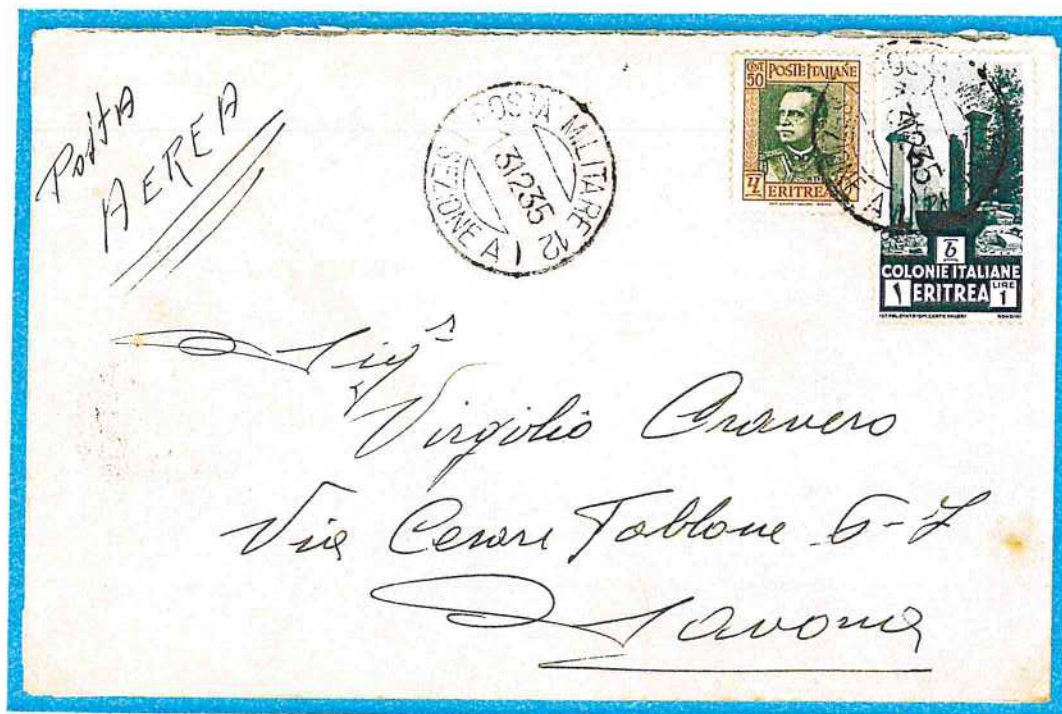 Posta
AEREA
POSTA MILITARE 12
31 12 35
SEZIONE A
CENT 50
POSTE ITALIANE
ERITREA
COLONIE ITALIANE
1 ERITREA LIRE 1
Sigr
Virgilio Cravero
Via Cesare
Savona